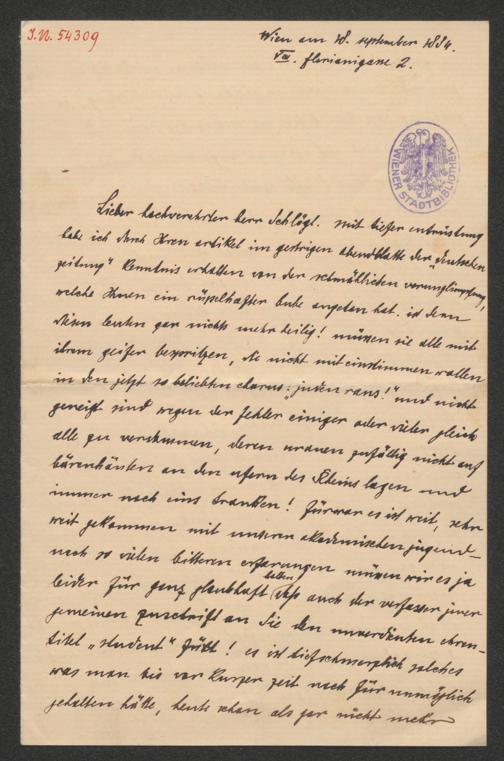 I.N. 54309
Wien am 18. september 1884.
VIII. florianigasse 2.
WIENER STADTBIBLIOTHEK
Lieber hochverehrter herr Schlögl. mit tiefer entrüstung
habe ich durch Ihren artikel im gestrigen abendblatte der „deutschen
zeitung" kenntnis erhalten von der schmählichen verunglimpfung,
welche Ihnen ein rüpelhafter bube angetan hat. ist denn
diesen leuten gar nichts mehr heilig! müssen sie alle mit
ihrem geifer bespritzen, die nicht mit einstimmen wollen
in den jetzt so beliebten chorus: „juden raus!" und nicht
geneigt sind wegen der fehler einiger oder vieler gleich
alle zu verdammen, deren uranen zufällig nicht auf
bärenhäuten an den ufern des Rheins lagen und
immer noch eins tranken! fürwar es ist weit, sehr
weit gekommen mit unserer akademischen jugend –
nach so vielen bitteren erfarungen müssen wir es ja
leider für ganz glaubhaft halten, dass auch der verfasser jener
gemeinen zuschrift an Sie den unverdienten ehren-
titel „student" fürt! es ist tiefschmerzlich solches
was man bis vor kurzer zeit noch für unmöglich
gehalten hätte, heute schon als gar nicht mehr